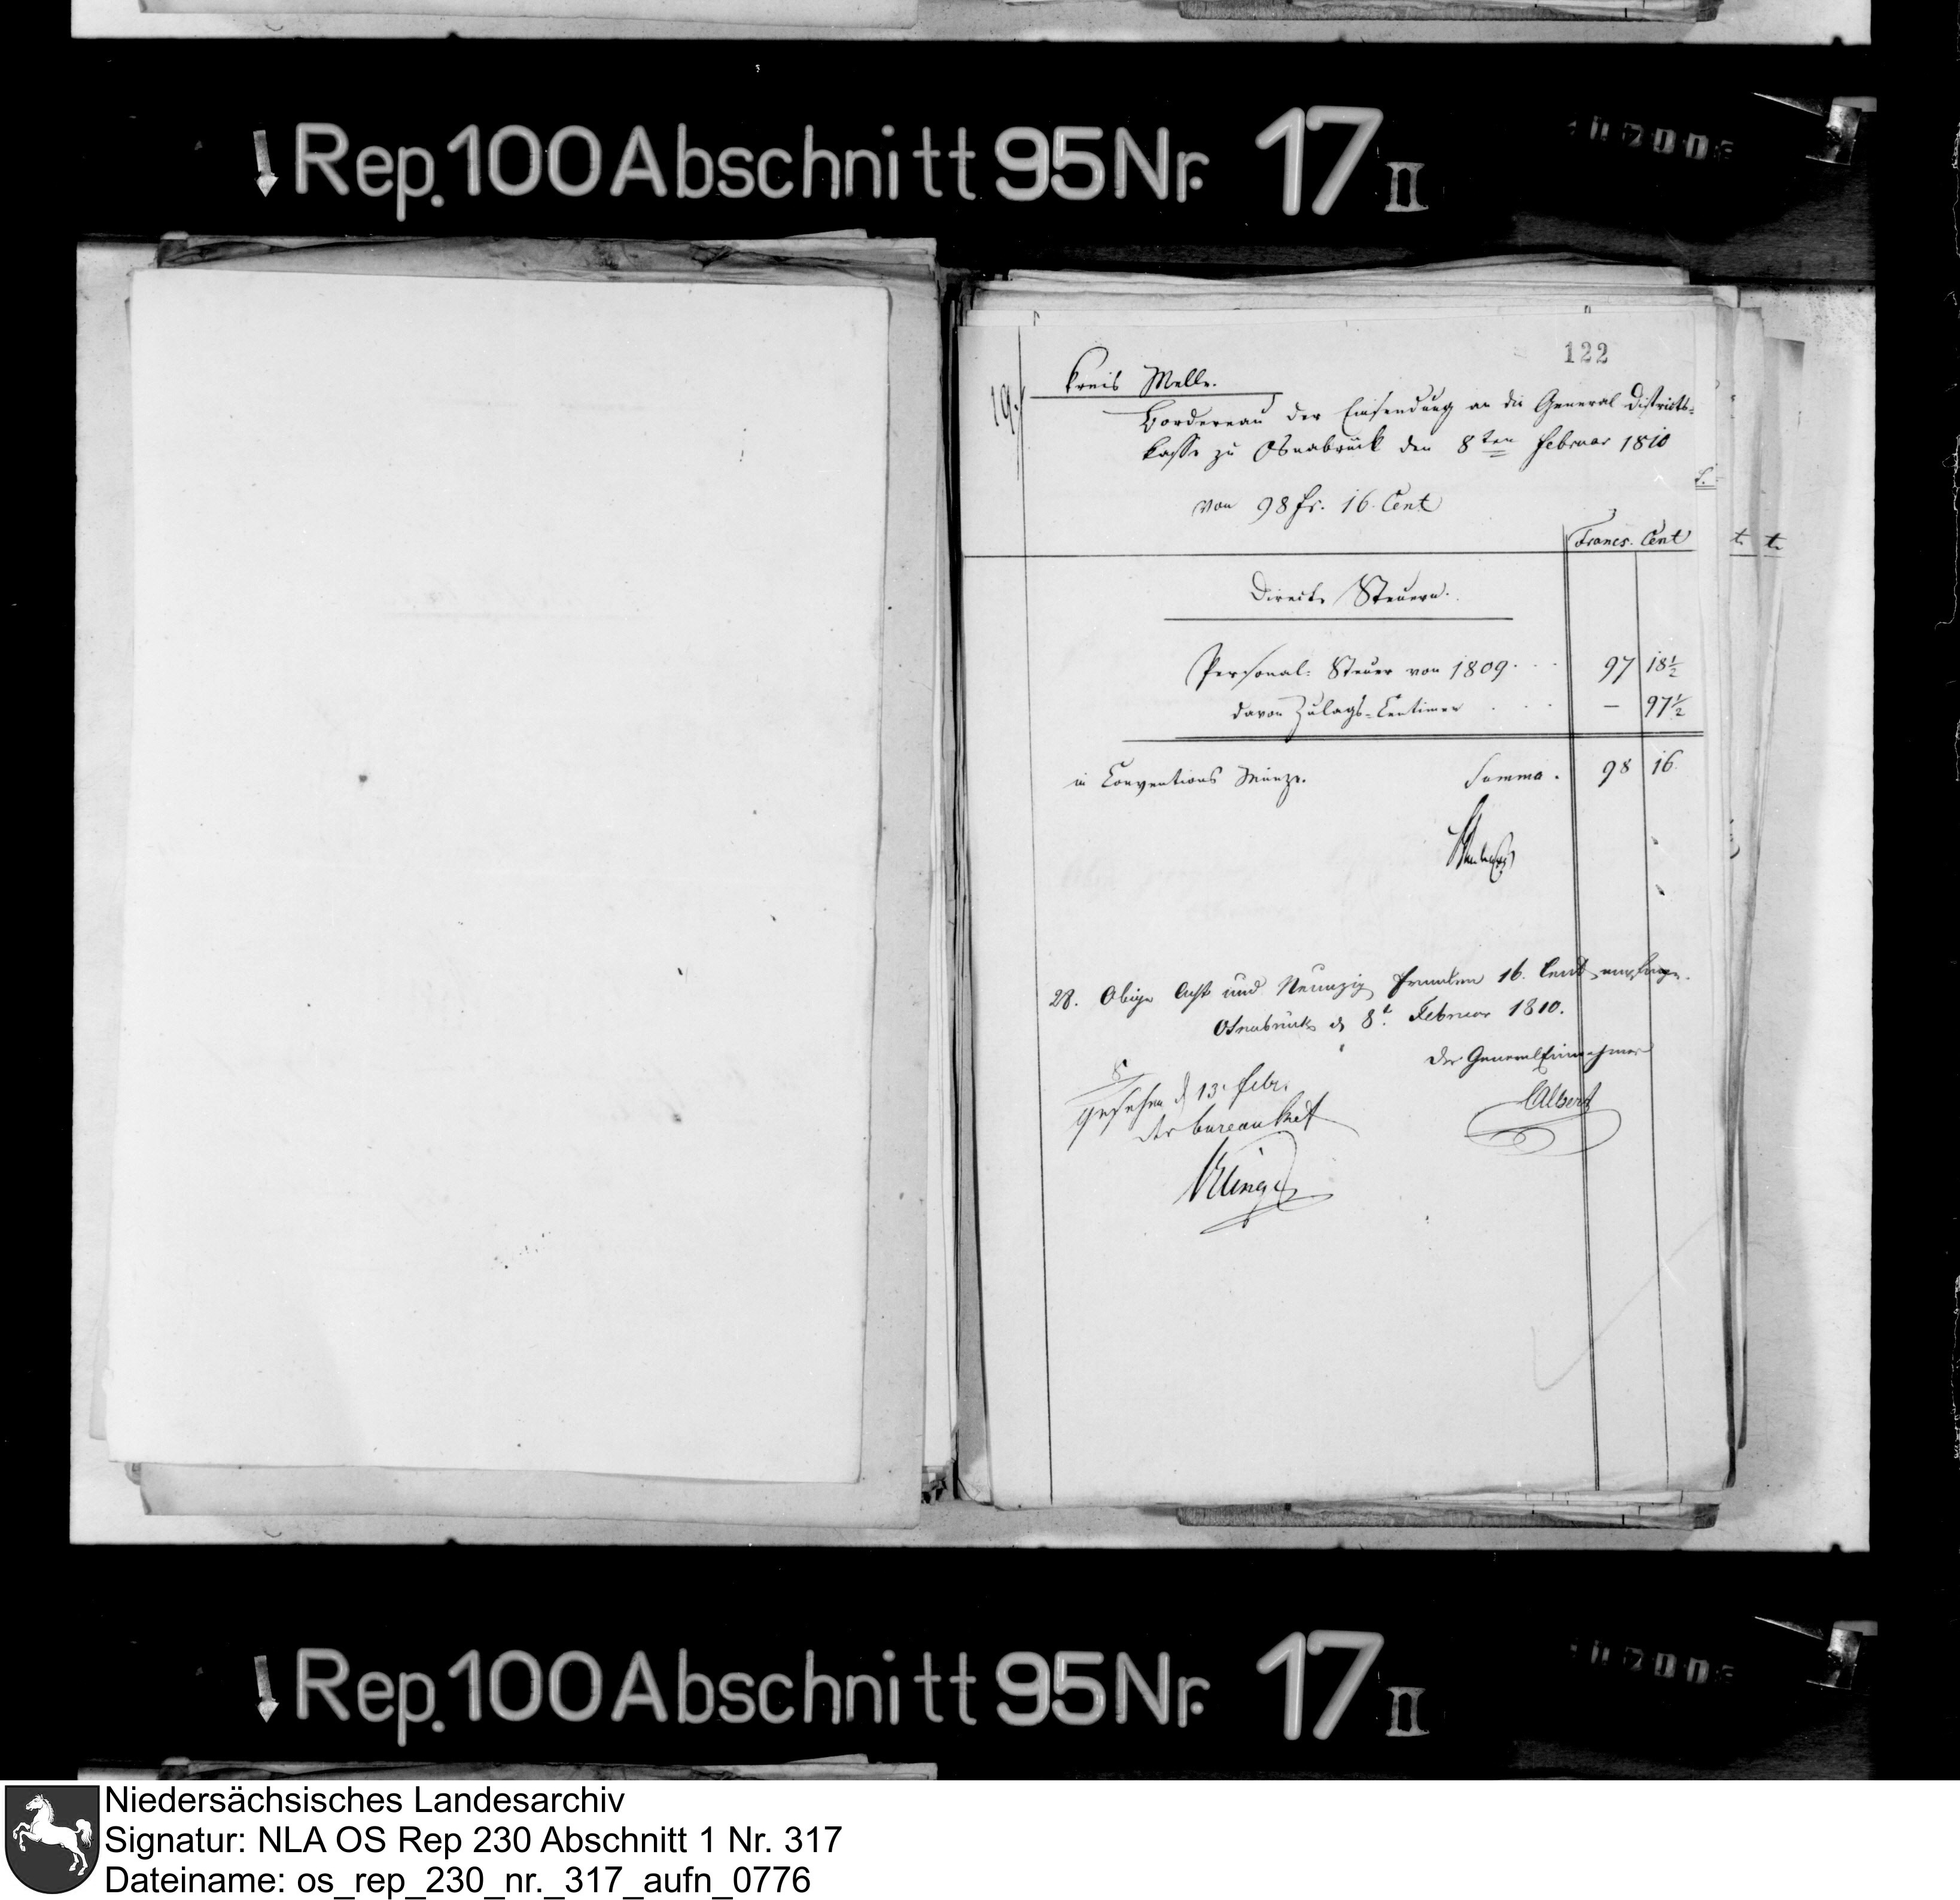 Rep. 100 Abschnitt 95 Nr. 17 II
122
19.
Kreis Melle.
Bordereau der Einsendung an die General Districts-
Casse zu Osnabrück den 8ten Februar 1810
von 98 fr. 16. Cent
Francs. Cent
Directe Steuern.
Personal-Steuer von 1809. . . 97 18½
davon Zulags-Centimen . . . — 97½
in Conventions Münze. Summa. 98 16.
28. Obige Acht und Neunzig Franken 16. Cent empfangen.
Osnabrück d 8t. Februar 1810.
Der General Einnehmer
Albert
gesehen d 13. febr.
der bureau Chef
Klinge
Rep. 100 Abschnitt 95 Nr. 17 II
Niedersächsisches Landesarchiv
Signatur: NLA OS Rep 230 Abschnitt 1 Nr. 317
Dateiname: os_rep_230_nr._317_aufn_0776